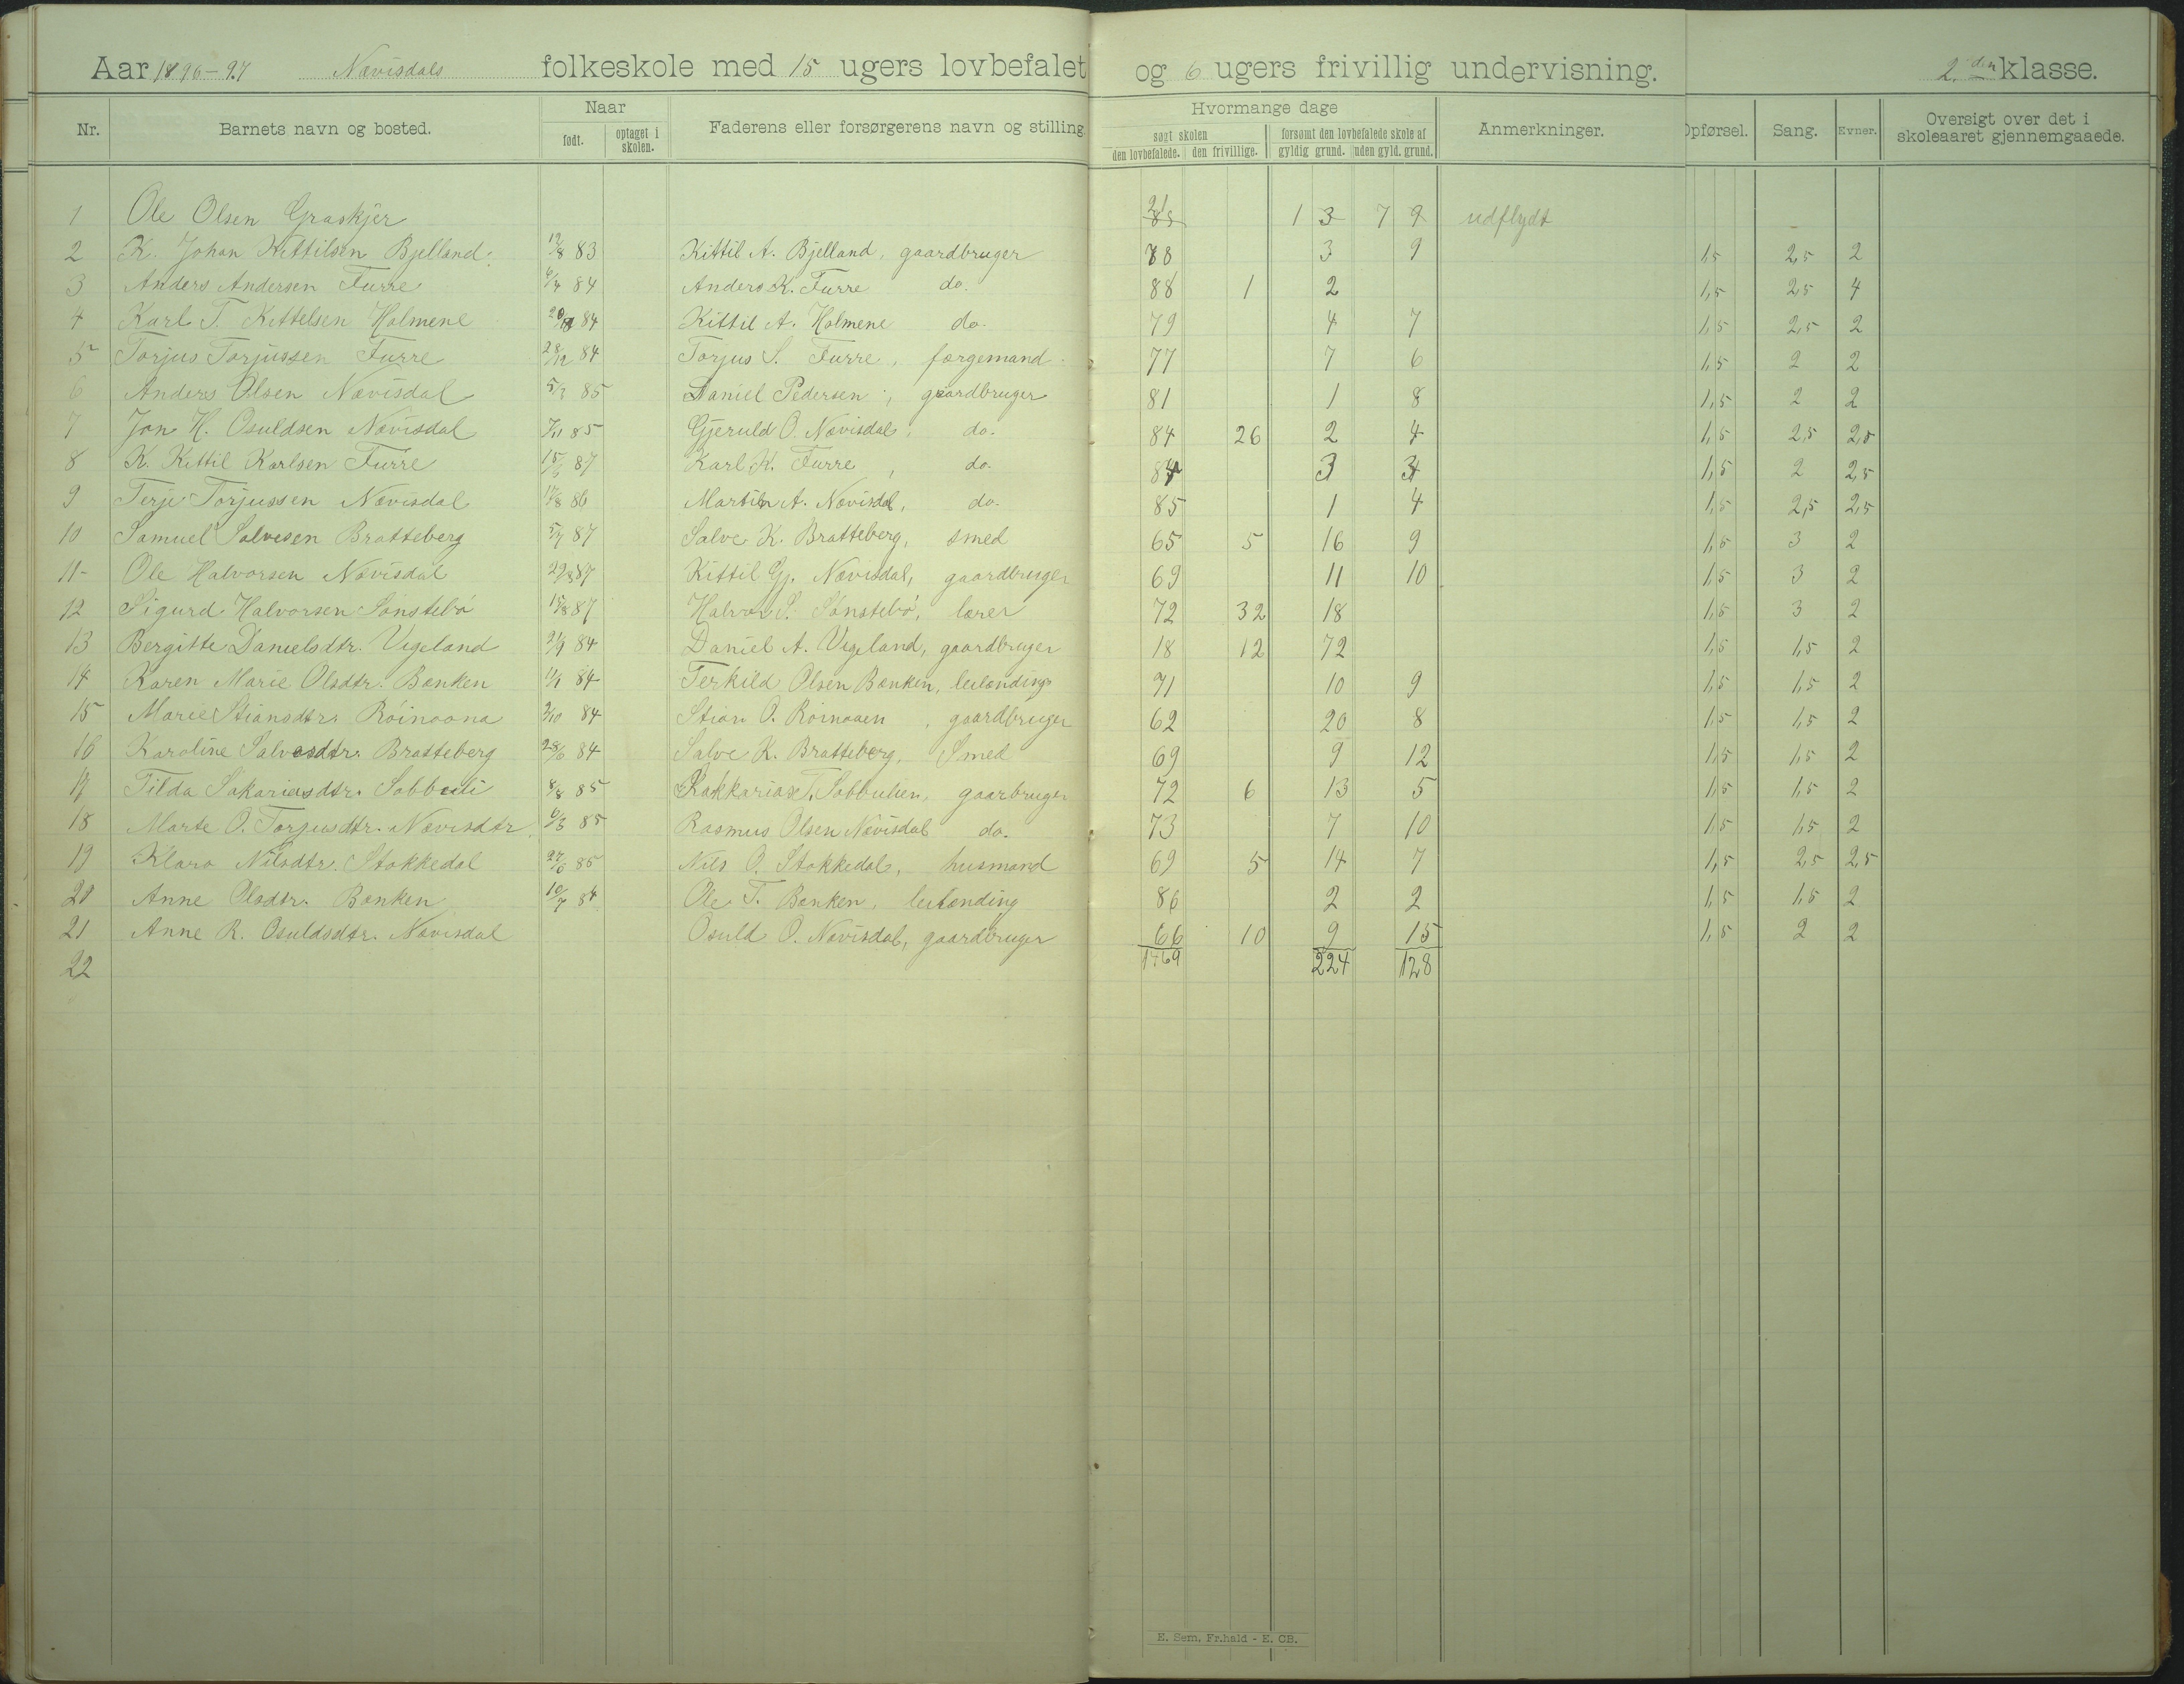 Aar 1896-97 Nævisdals folkeskole med 15 ugers lovbefalet og 6 ugers frivillig undervisning. 2.den klasse.
Nr. Barnets navn og bosted. Naar født. optaget i skolen. Faderens eller forsørgerens navn og stilling Hvormange dage søgt skolen den lovbefalede. den frivillige. forsømt den lovbefalede skole af gyldig grund. uden gyld. grund. Anmerkninger. Opførsel. Sang. Evner. Oversigt over det i skoleaaret gjennemgaaede.
1 Ole Olsen Graskjer 21 1 3 7 9 udflydt
2 K. Johan Kittilsen Bjelland. 12/8 83 Kittil A. Bjelland, gaardbruger 88 3 9 1,5 2,5 2
3 Anders Andersen Furre 84 Anders K. Furre do. 88 1 2 1,5 2,5 4
4 Karl T. Kittelsen Holmene 84 Kittil A. Holmene do. 79 4 7 1,5 2,5 2
5 Torjus Torjussen Furre 28/12 84 Torjus S. Furre, færgemand 77 7 6 1,5 2 2
6 Anders Olsen Nævisdal 85 Daniel Pedersen, gaardbruger 81 1 8 1,5 2 2
7 Jon H. Osuldsen Nævisdal 7/11 85 Gjeruld O. Nævisdal, do. 84 26 2 4 1,5 2,5 2,5
8 K. Kittil Karlsen Furre 87 Karl K. Furre, do. 84 3 3 1,5 2 2,5
9 Terje Torjussen Nævisdal 17/8 86 Martin A. Nævisdal, do. 85 1 4 1,5 2,5 2,5
10 Samuel Salvesen Bratteberg 87 Salve K. Bratteberg, smed 65 5 16 9 1,5 3 2
11 Ole Halvorsen Nævisdal 29/8 87 Kittil Gj. Nævisdal, gaardbruger 69 11 10 1,5 3 2
12 Sigurd Halvorsen Sønstebø 15/8 87 Halvor S. Sønstebø, lærer 72 32 18 1,5 3 2
13 Bergitte Danielsdtr. Vigeland 2/9 84 Daniel A. Vigeland, gaardbruger 18 12 72 1,5 1,5 2
14 Karen Marie Olsdtr. Bænken 84 Terkild Olsen Bænken, leilænding 71 10 9 1,5 1,5 2
15 Marie Stiansdtr. Røinaana 2/10 84 Stian O. Røinaaen, gaardbruger 62 20 8 1,5 1,5 2
16 Karoline Salvesdtr. Bratteberg 84 Salve K. Bratteberg, Smed 69 9 12 1,5 1,5 2
17 Tilda Sakariasdtr. Sabbuli 8/8 85 Sakkarias T. Sabbulien, gaarbruger 72 6 13 5 1,5 1,5 2
18 Marte O. Torjusdtr. Nævisdtr 6/3 85 Rasmus Olsen Nævisdal do. 73 7 10 1,5 1,5 2
19 Klara Nilsdtr. Stokkedal 27/6 85 Nils O. Stokkedal, husmand 69 5 14 7 1,5 2,5 2,5
20 Anne Olsdtr. Bænken 10/7 84 Ole T. Bænken, leilænding 86 2 2 1,5 1,5 2
21 Anne R. Osuldsdtr. Nævisdal Osuld O. Nævisdal, gaardbruger 66 10 9 15 1,5 2 2
22 1469 224 128
E. Sem, Fr.hald - E. CB.